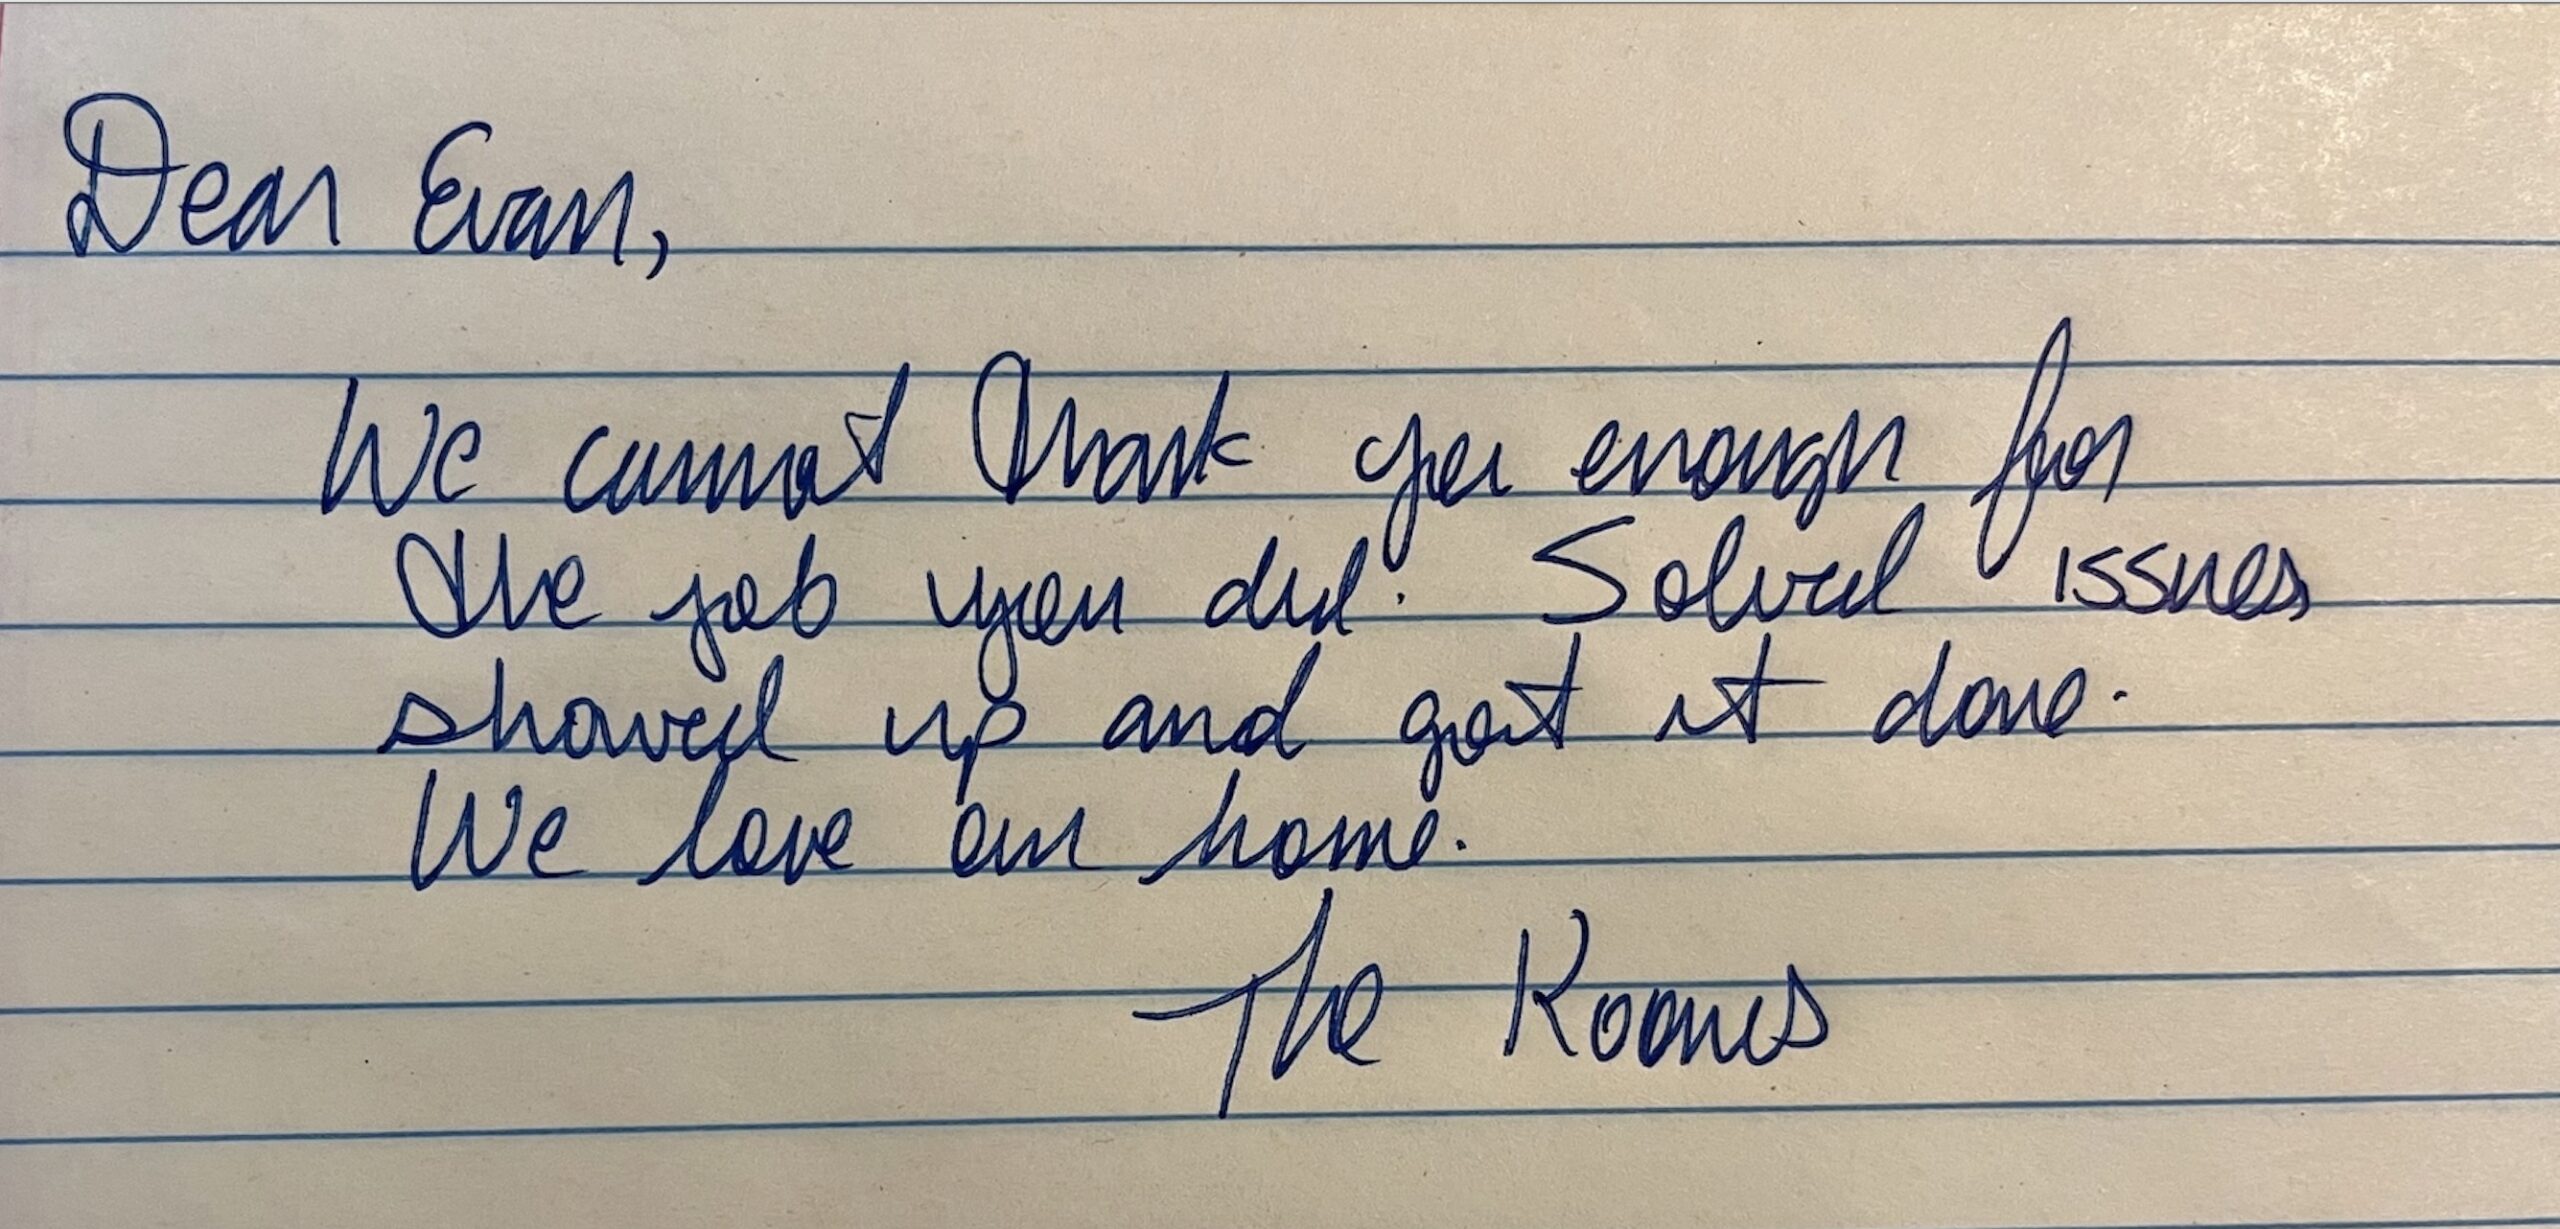 Dear Evan,
We cannot thank you enough for
the job you did. Solved issues
showed up and got it done.
We love our home.
The